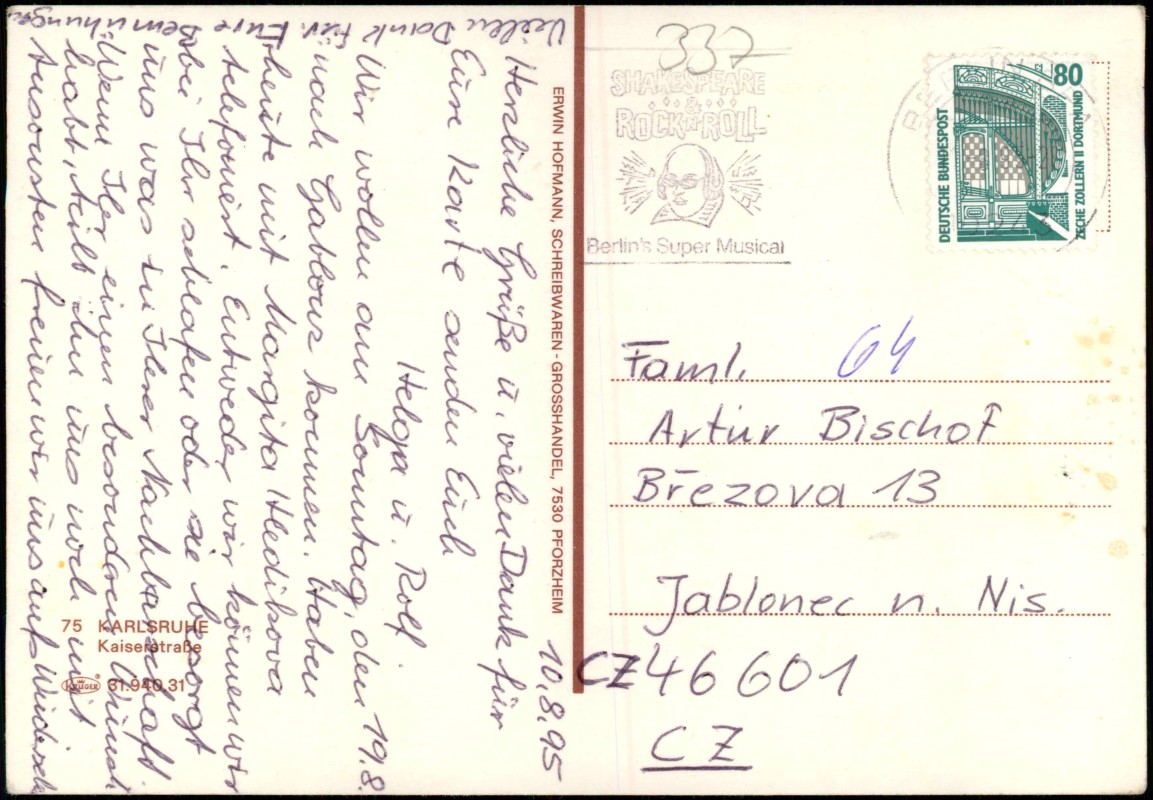 10.8.95
Herzliche Grüße u. vielen Dank für
Eure Karte senden Euch
Helga u. Rolf
Wir wollen am Sonntag, den 19.8.
nach Gablonz kommen. Haben
heute mit Margita Hledikova
telefoniert. Entweder wir können wir
bei Ihr schlafen oder sie besorgt
uns was in Ihrer Nachbarschaft.
Wenn Ihr einen besonderen Wunsch
habt, teilt ihn uns noch mit
Ansonsten freuen wir uns aufs Wiedersehn
Vielen Dank für Eure Bemühungen
ERWIN HOFMANN, SCHREIBWAREN - GROSSHANDEL, 7530 PFORZHEIM
75 KARLSRUHE
Kaiserstraße
KRÜGER 31.940.31
337
SHAKESPEARE
&
ROCK'N'ROLL
Berlin's Super Musical
BERLIN
80
DEUTSCHE BUNDESPOST
ZECHE ZOLLERN II DORTMUND
Faml. 64
Artur Bischof
Březova 13
Jablonec n. Nis.
CZ 46 601
CZ